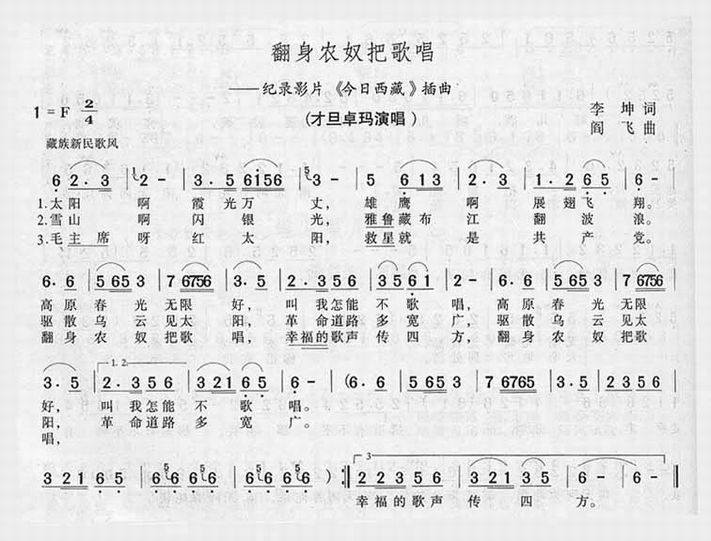 翻身农奴把歌唱
——纪录影片《今日西藏》插曲
(才旦卓玛演唱)
1=F 2/4
李坤词
阎飞曲
藏族新民歌风
6 2·3 | 2 - | 3·5 6156 | 3 - | 5 613 | 2·3 | 1·2 65 | 6 - |
1.太阳 啊 霞光万 丈, 雄鹰 啊 展翅飞 翔。
2.雪山 啊 闪银 光, 雅鲁藏布 江 翻波 浪。
3.毛主席 呀 红太 阳, 救星就 是 共产 党。
6·6 | 5 653 | 7 6756 | 3· | 2·356 | 3561 | 6·6 | 5 653 | 7 6756 |
高原春光无限 好, 叫我怎能不歌 唱, 高原春光无限
驱散乌云见太 阳, 革命道路多宽 广, 驱散乌云见太
翻身农奴把歌 唱, 幸福的歌声传四 方, 翻身农奴把歌
3·5 | 1. 2. 2·356 | 32165 | 6 - | (6·6 | 5 653 | 7 6765 | 3·5 | 2356 |
好, 叫我怎能不歌唱。
阳, 革命道路多宽广。
唱,
321 65 | 6 5 6 5 | 6 6 6 5 | 6 6 6 5 | 6 - ) :‖ 3 2·356 | 321 | 5·6 | 6 - | 6 - ‖
幸福的歌声 传 四 方。